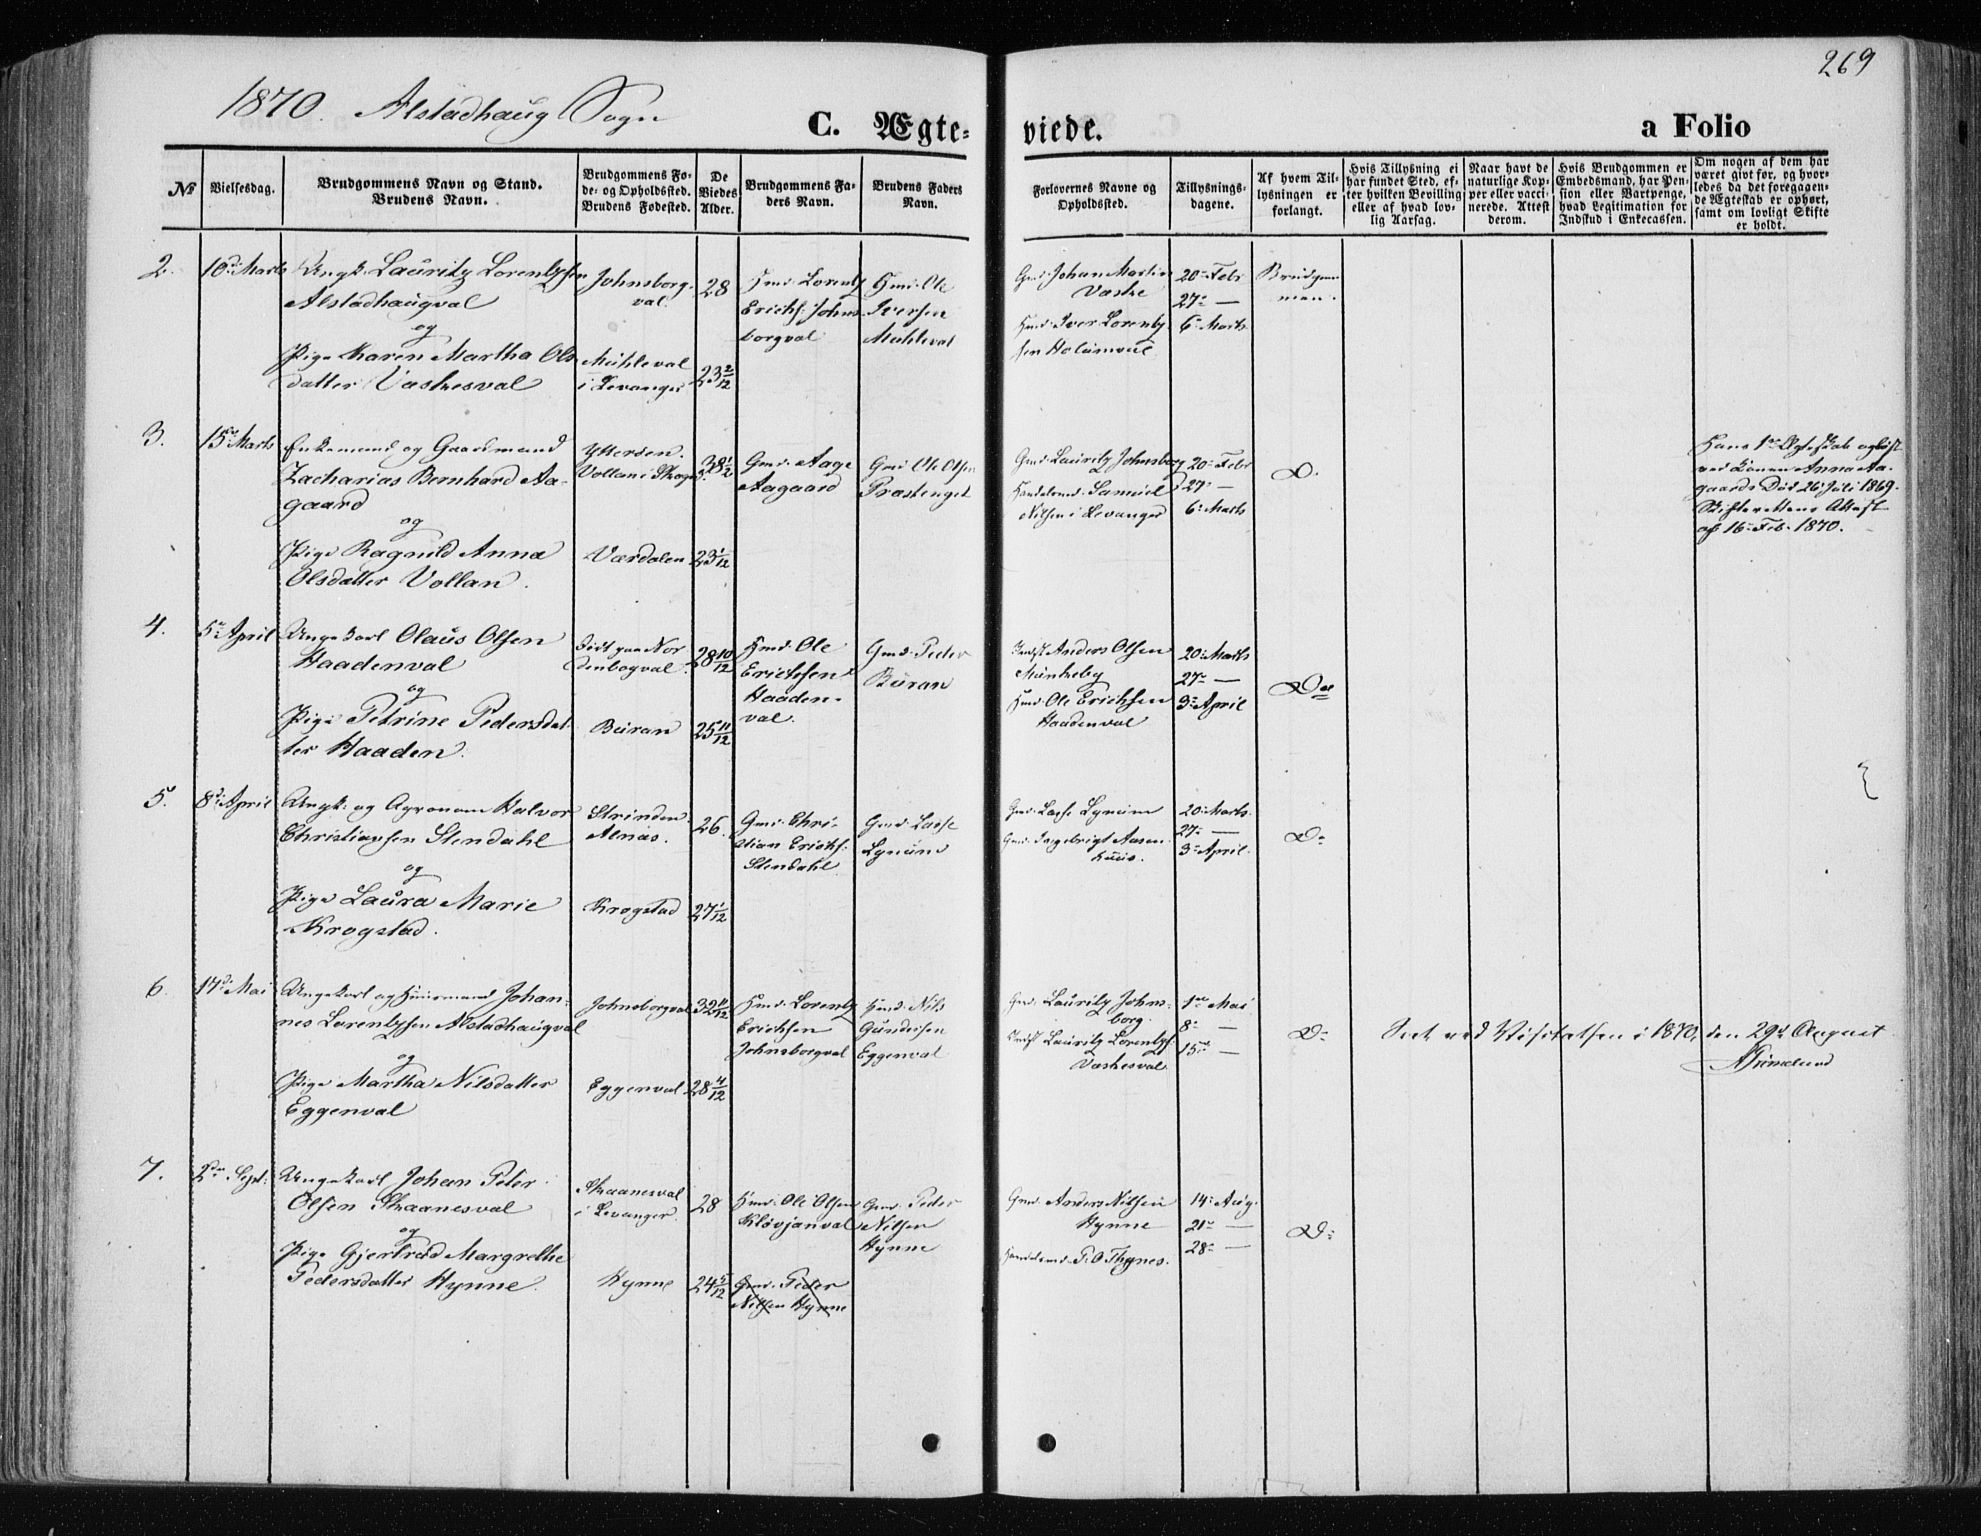 269
1870. Alstadhaug Sogn
C. Ægte-
viede.
a Folio
No
Vielsesdag.
Brudgommens Navn og Stand.
Brudens Navn.
Brudgommens Fø-
de- og Opholdssted.
Brudens Fødested.
De
Viedes
Alder.
Brudgommens Fa-
ders Navn.
Brudens Faders
Navn.
Forlovernes Navne og
Opholdssted.
Tillysnings-
dagene.
Af hvem Til-
lysningen er
forlangt.
Hvis Tillysning ei
har fundet Sted, ef-
ter hvilken Bevilling
eller af hvad lov-
lig Aarsag.
Naar havt de
naturlige Kop-
per eller vacci-
nerede. Attest
derom.
Hvis Brudgommen er
Embedsmand, har Pen-
sion eller Vartpenge,
hvad Legitimation for
Indskud i Enkecassen.
Om nogen af dem har
været givt før, og hvor-
ledes da det foregaaen-
de Ægteskab er ophørt,
samt om lovligt Skifte
er holdt.
2.
10de Marts
Ungk. Lauritz Lorentzsen
Alstadhaugval
og
Pige Karen Martha Ols-
datter Vaskesval
Johnsborg-
val
Mühleval
i Levanger
28
23 2/12
Hmd. Lorentz
Erichs. Johns-
borgval
Hmd. Ole
Iversen
Mühleval
Gmd. Johan Martin
Vaske
Hmd. Iver Lorentz-
sen Holúmval
20de Febr
27de —
6te Marts
Brudgom-
men.
3.
15de Marts
Enkemand og Gaardmand
Zacharias Bernhard Aa-
gaard
og
Pige Ragnild Anna
Olsdatter Vollan.
Ytterøen.
Vollan i Skogn
Værdalen
38 1/2
23 1/12
Gmd. Aage
Aagaard
Gmd. Ole Olsen
Præstenget
Gmd. Lauritz Johnsborg
Handelsmd. Samuel
Nilsen i Levanger
20de Febr
27de —
6te Marts
D.
Hans 1ste Ægteskab opløst
ved Konen Anna Aa-
gaards Død 26 Juli 1869.
Skifterettens Attest
af 16 Feb. 1870.
4.
5te April
Ungekarl Olaus Olsen
Haadenval
og
Pige Petrine Pedersdat-
ter Haaden.
Født paa Nor-
denbogval.
Buran
28 10/12
25 11/12
Hmd. Ole
Erichsen
Haaden-
val.
Gmd. Peder
Buran
Anders Olsen
Munkeby
Hmd. Ole Erichsen
Haadenval
20de Marts
27de —
3de April
Do
5.
8de April
Ungk. og Agronom Halvor
Christiansen Stendahl
og
Pige Laura Marie
Krogstad.
Strinden.
Krogstad
26.
27 1/12
Gmd. Chri-
stian Erichs.
Stendahl
Gmd. Lasse
Lynum
Gmd. Lasse Lynum
Gmd. Ingebrigt Aasen-
huus.
20de Marts.
27de —
3de April.
D.
6.
14de Mai
Ungekarl og Huusmand Johan-
nes Lorentzsen Alstadhaugval
og
Pige Martha Nilsdatter
Eggenval
Johnsborgval
Eggenval
32 11/12
28 4/12
Hmd. Lorentz
Erichsen
Johnsborgval
Hmd. Nils
Gundersen
Eggenval
Gmd. Lauritz Johns-
borg.
Lauritz Lorentzs.
Vaskesval
1ste Mai
8de —
15de —
D.
Seet ved Visitatsen i 1870, den 29de August
Grimelund
7.
2den Sept.
Ungekarl Johan Peter
Olsen Skaanesval
og
Pige Gjertrud Margrethe
Pedersdatter Hynne.
Skaanesval
i Levanger.
Hynne
28
24 5/12
Hmd. Ole Olsen
Kløvjanval
Gmd. Peder
Nilsen Hynne
Gmd. Peder
Nilsen
Hynne
Gmd. Anders Nilsen
Hynne
Handelsmd. P. O. Thynes.
14de Aug.
21de —
28de —
D.